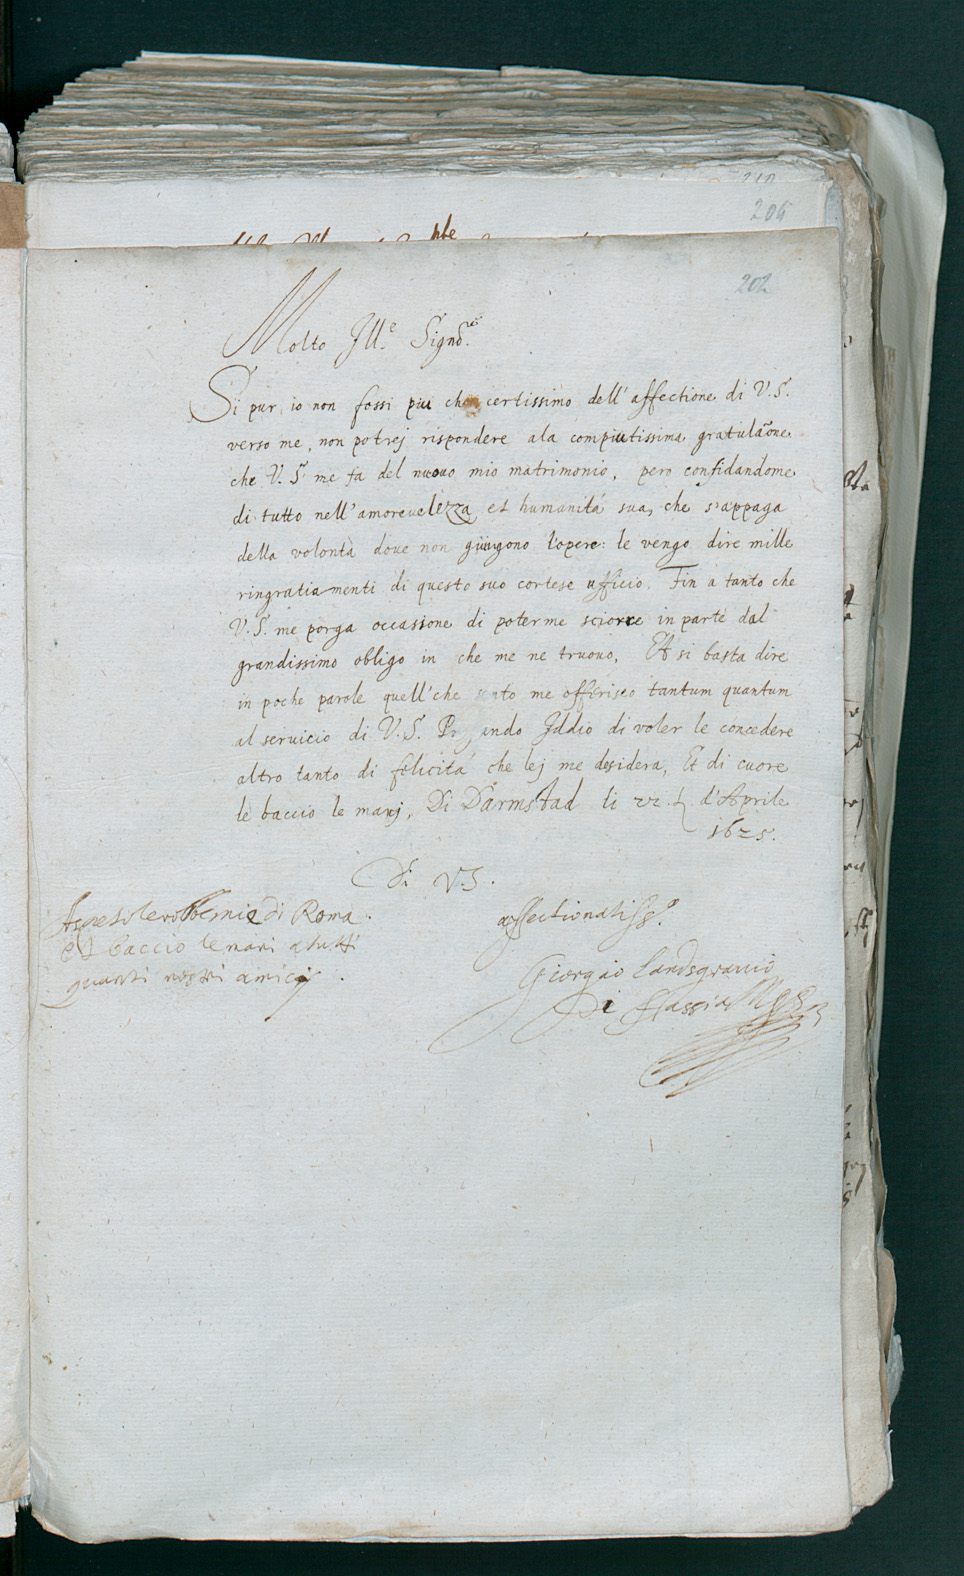 210
204
202
Molto Ill.e Signo.re
Si pur io non fossi piu che certissimo dell'affectione di V.S.
verso me, non potrej rispondere ala compiutissima gratulaõne
che V.S. me fa del nuouo mio matrimonio, pero confidandome
di tutto nell'amoreuolezza et humanitá sua, che s'appaga
della volontà doue non giungono l'opere: le vengo dire mille
ringratiamenti di questo suo cortese ufficio. Fin a tanto che
V.S. me porga occassione di poterme sciorre in parte dal
grandissimo obligo in che me ne truouo, Et si basta dire
in poche parole quell'che sento me offerisco tantum quantum
al seruicio di V.S. Pregando Iddio di voler le concedere
altro tanto di felicitá che lej me desidera, Et di cuore
le baccio le manj, Di Darmstad li 22. d'Aprile
1625.
Di V.S.
di Roma.
et baccio le mani a tutti
quanti nostri amicj
affectionatiss.o
Giorgio Landsgrauio
di Hassia